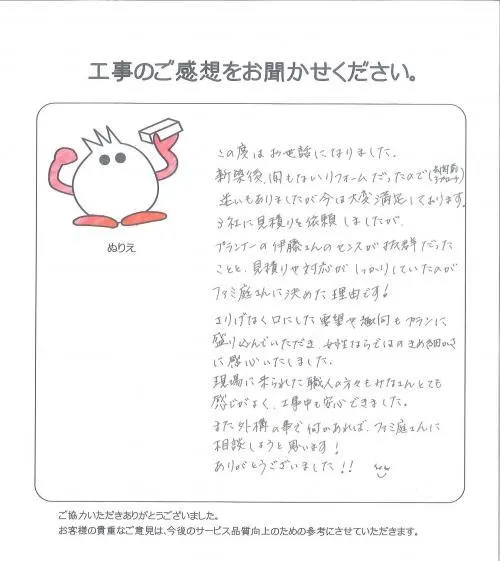 工事のご感想をお聞かせください。
ぬりえ
この度はお世話になりました。
新築後、間もないリフォームだったので(玄関前アプローチ)
迷いもありましたが今は大変満足しております。
3社に見積りを依頼しましたが、
プランナーの伊藤さんのセンスが抜群だった
ことと、見積りや対応がしっかりしていたのが
ファミ庭さんに決めた理由です!
さりげなく口にした要望や趣向もプランに
盛り込んでいただき、女性ならではのきめ細かさ
に感心いたしました。
現場に来られた職人の方々もみなさんとても
感じがよく、工事中も安心できました。
また外構の事で何かあれば、ファミ庭さんに
相談しようと思います!
ありがとうございました!!
ご協力いただきありがとうございました。
お客様の貴重なご意見は、今後のサービス品質向上のための参考にさせていただきます。